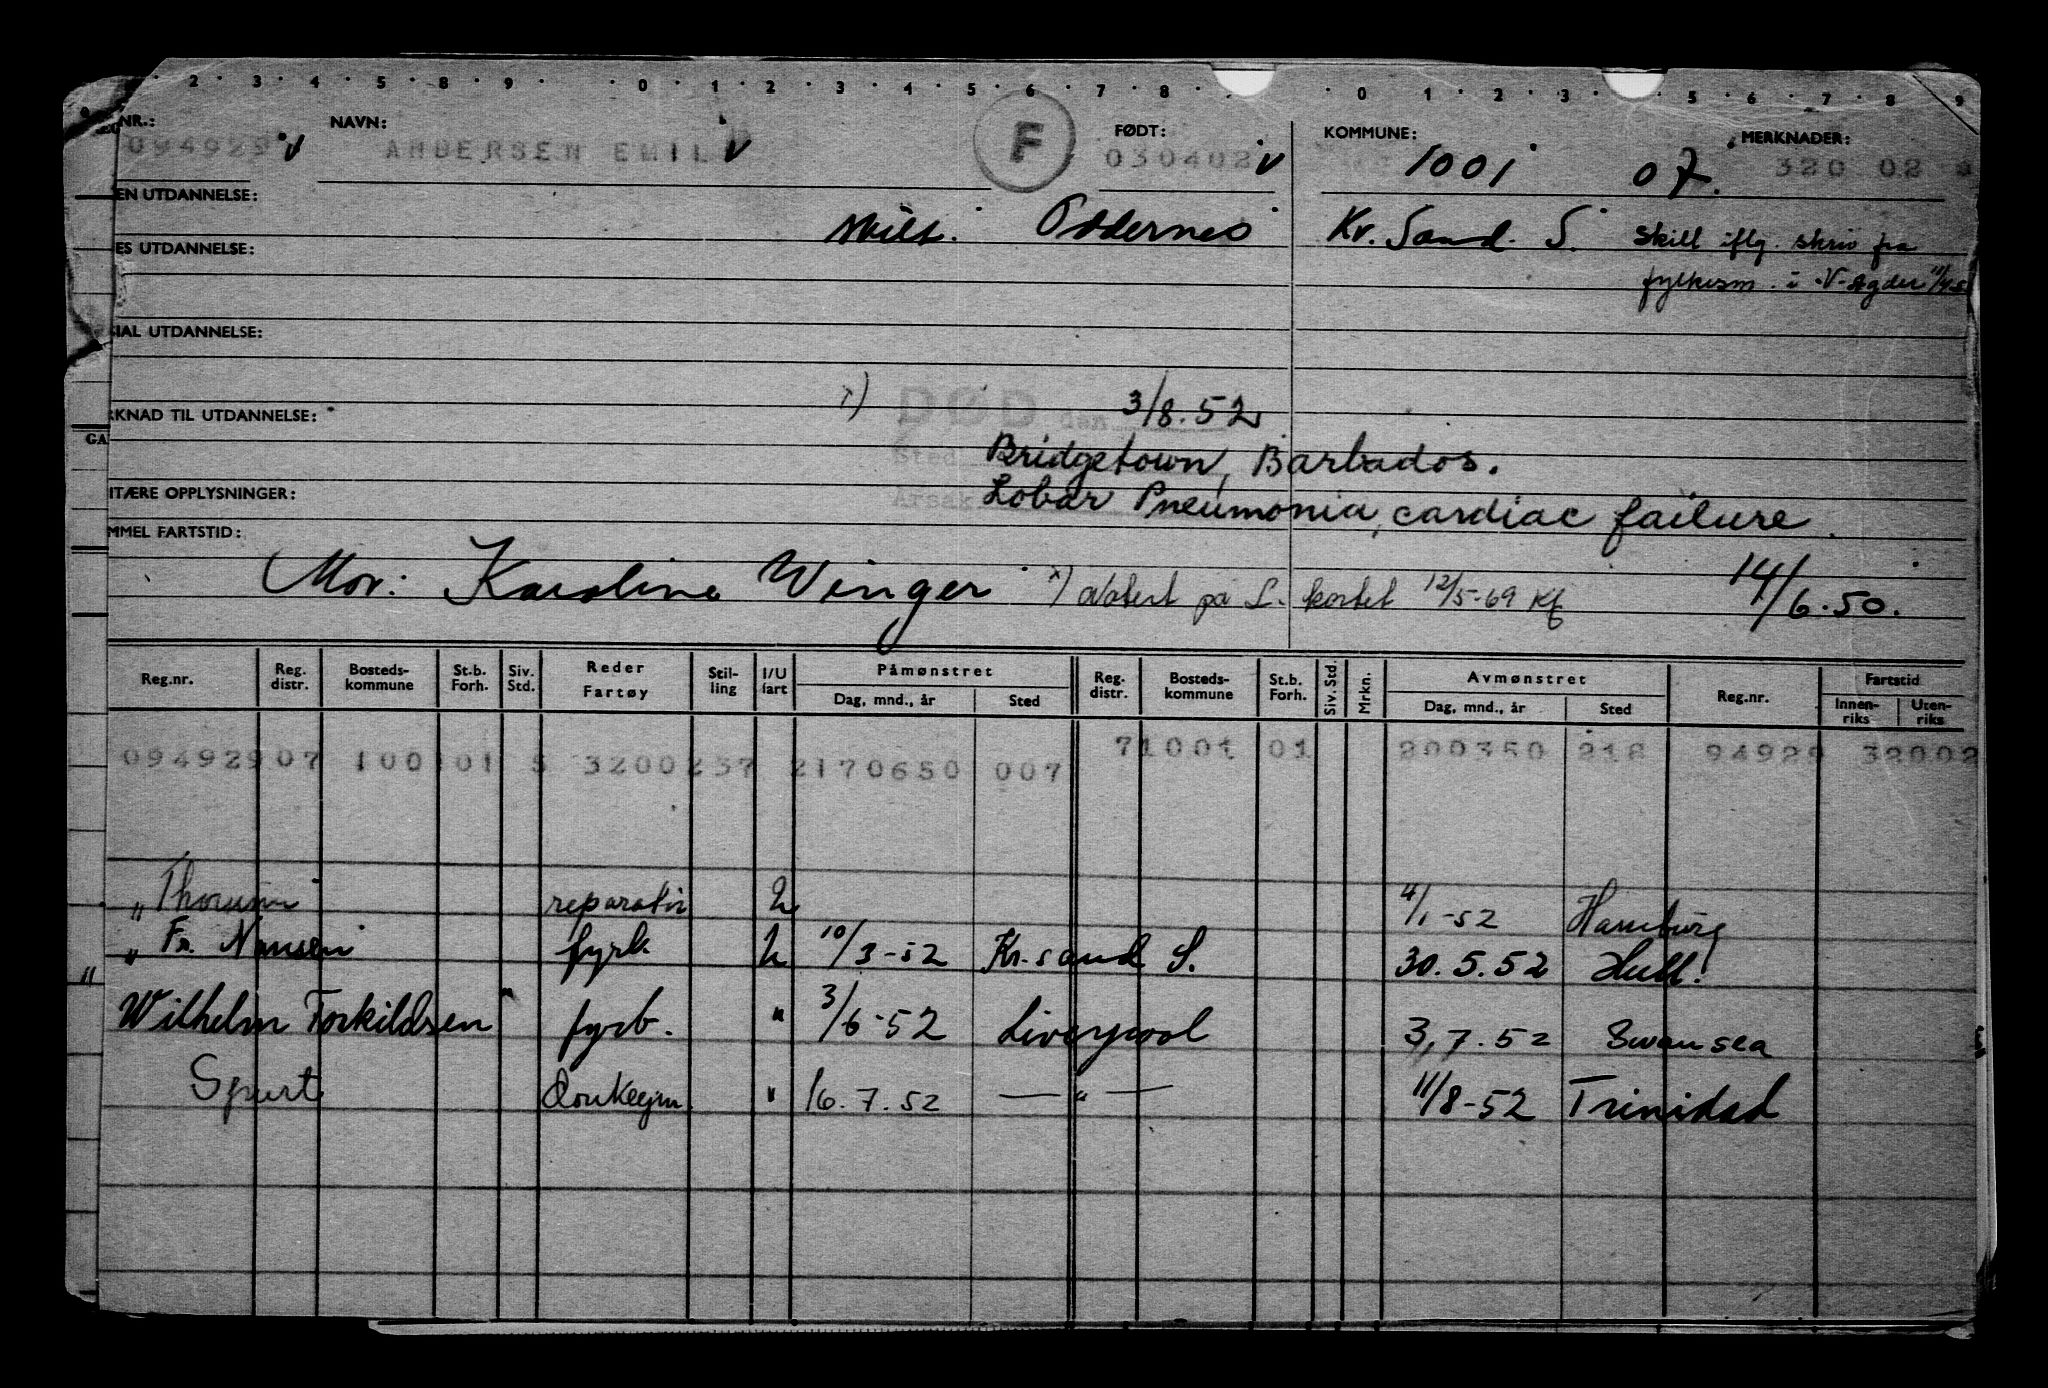 2 3 4 5 8 9 0 1 2 3 4 5 6 7 8 0 1 2 3 5 6 7 8 9
NR.: NAVN: F FØDT: KOMMUNE: MERKNADER:
094929 V ANDERSEN EMIL V 030402 V 1001 07. 320 02
EN UTDANNELSE:
skilt. Oddernes Kr. Sand. S. skill iflg. skriv fra
ES UTDANNELSE:
fylkesm. i V-Agder
IAL UTDANNELSE:
DØD den 3/8.52
RKNAD TIL UTDANNELSE:
GA
Sted Bridgetown, Barbados.
ITÆRE OPPLYSNINGER:
Årsak Lobar Pneumonia, cardiac failure
MMEL FARTSTID:
Mor: Karoline Winger x) notert på S. kortet 12/5-69 Kf 14/6.50.
Reg.nr. Reg. distr. Bosteds- kommune St.b. Forh. Siv. Std. Reder Fartøy Stil- ling I/U fart Påmønstret Dag, mnd., år Sted Reg. distr. Bosteds- kommune St.b. Forh. Siv. Std. Mrkn. Avmønstret Dag, mnd., år Sted Reg.nr. Fartstid Innen- riks Uten- riks
09492907 100101 S 3200257 2170650 007 71001 01 200350 218 94929 32002
" Thorunn reparatør U 4/1-52 Hamburg
" Fr. Nansen fyrb U 10/3-52 Kr.sand S. 30.5.52 Hull.
" Wilhelm Torkildsen " fyrb. " 3/6-52 Liverpool 3.7.52 Swansea
Spurt Donkeym " 16.7.52 — " — 11/8-52 Trinidad